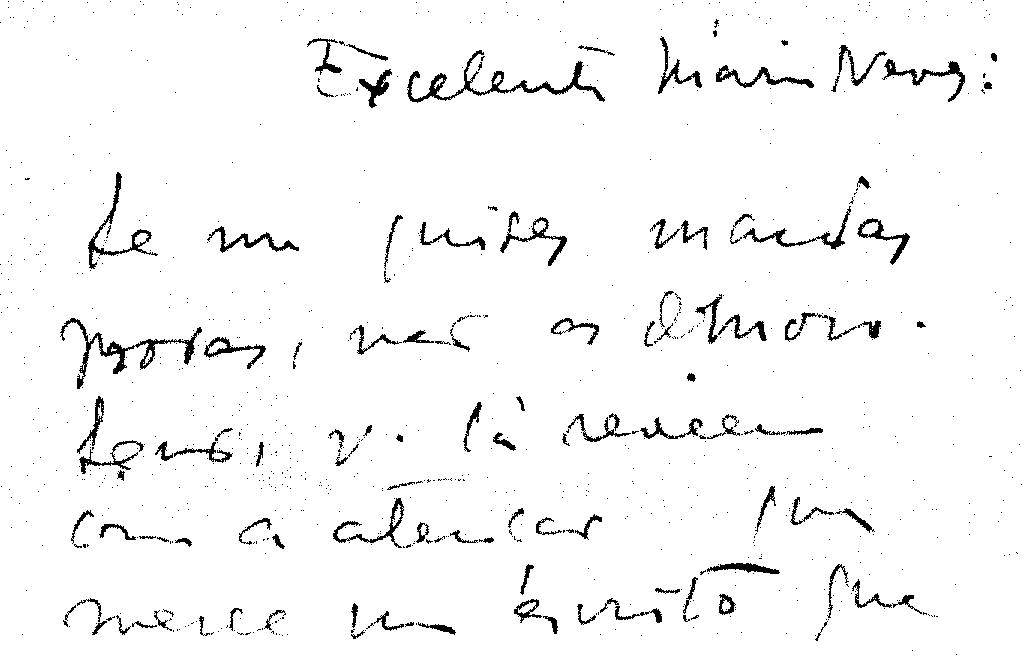 Excelente Mário Neves:
Se me quiser mandar
provas, não as demoro.
Senão, v. lá reveem
com a atenção que
merece um escrito que